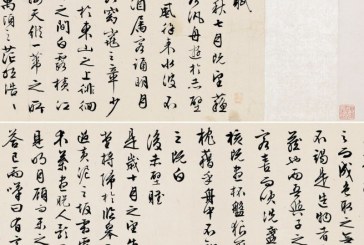 賦
秋七月既望蘇
客汎舟遊於赤壁
風徐來水波不
酒屬客誦明月
窈窕之章少
於東山之上徘徊
之間白露橫江
天縱一葦之所
萬頃之茫然浩
之而成色取之無
不竭是造物者
藏也而吾與子之
客喜而笑洗盞
核既盡杯盤狼
枕藉乎舟中不知
之既白
後赤壁賦
是歲十月之望步
堂將歸於臨皋
過黃泥之坂霜露
木葉盡脫人影
見明月顧而樂之
答已而嘆曰有客